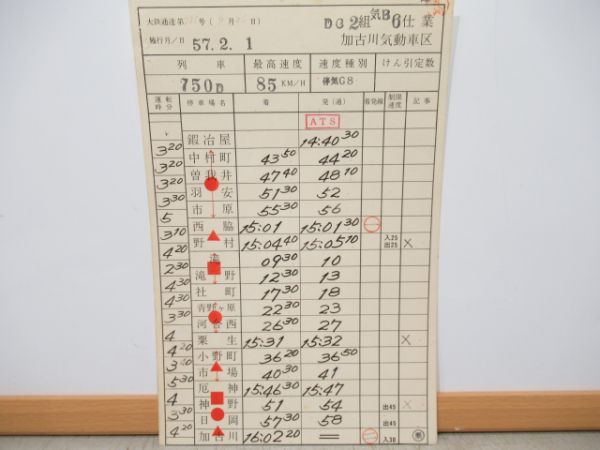 大鉄通達第 号( 月 日)
DC2組 気B 6仕業
施行月/日 57.2.1
加古川気動車区
列車 最高速度 速度種別 けん引定数
750D 85KM/H 停気G8
運転時分 停車場名 着 発(通) 着発線 制限速度 記事
ATS
鍛冶屋 14:40 30
3 20 中村町 43 50 44 20
3 20 曽我井 47 40 48 10
3 20 羽安 51 30 52
3 30 市原 55 30 56
5 西脇 15:01 15:01 30
3 10 野村 15:04 40 15:05 10 入25 出25 ×
4 20 滝 09 30 10
2 30 滝野 12 30 13
4 30 社町 17 30 18
4 30 青野ヶ原 22 30 23
3 30 河合西 26 30 27
4 粟生 15:31 15:32 ×
4 20 小野町 36 20 36 50
市場 40 30 41
5 30 厄神 15:46 30 15:47
4 神野 51 54 出45 ×
3 30 日岡 57 30 58 出45
4 20 加古川 16:02 20 = 入30